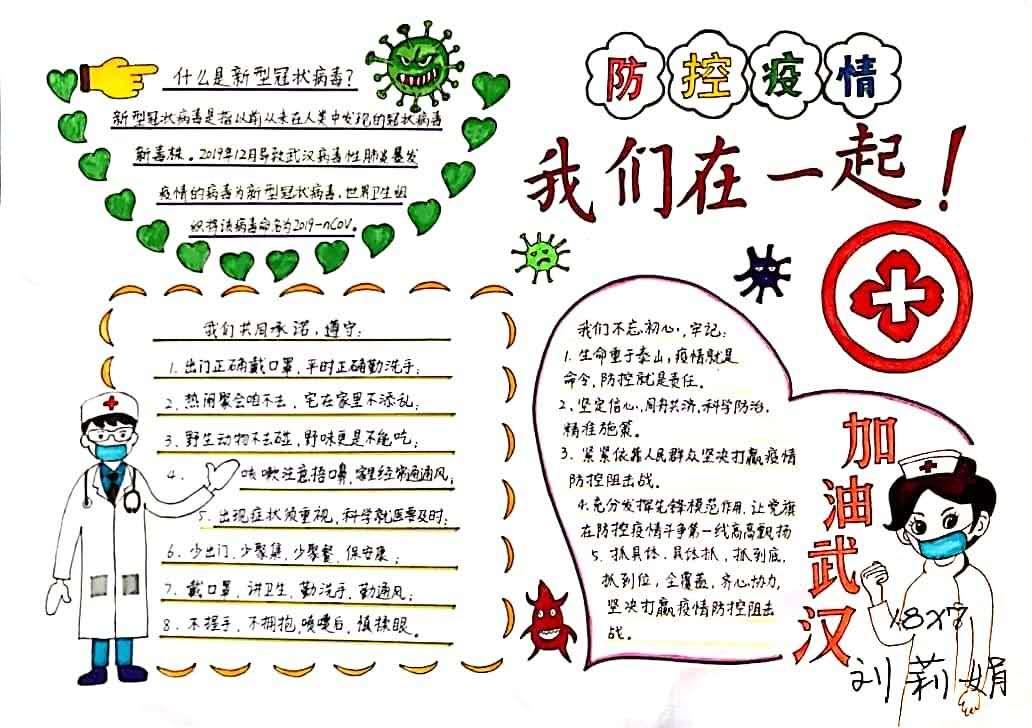 什么是新型冠状病毒?
新型冠状病毒是指以前从未在人类中发现的冠状病毒
新毒株。2019年12月导致武汉病毒性肺炎暴发
疫情的病毒为新型冠状病毒,世界卫生组
织将该病毒命名为2019-nCoV。
防控疫情
我们在一起!
我们共同承诺,遵守:
1.出门正确戴口罩,平时正确勤洗手;
2.热闹聚会咱不去,宅在家里不添乱;
3.野生动物不去碰,野味更是不能吃;
4.咳嗽注意捂口鼻,家里经常通通风;
5.出现症状须重视,科学就医要及时;
6.少出门,少聚集,少聚餐,保安康;
7.戴口罩,讲卫生,勤洗手,勤通风;
8.不握手,不拥抱,喷嚏后,慎揉眼。
我们不忘初心,牢记:
1.生命重于泰山,疫情就是
命令,防控就是责任。
2.坚定信心,同舟共济,科学防治,
精准施策。
3.紧紧依靠人民群众坚决打赢疫情
防控阻击战。
4.充分发挥先锋模范作用,让党旗
在防控疫情斗争第一线高高飘扬
5.抓具体、具体抓,抓到底,
抓到位,全覆盖,齐心协力,
坚决打赢疫情防控阻击
战。
加油武汉
刘莉娟